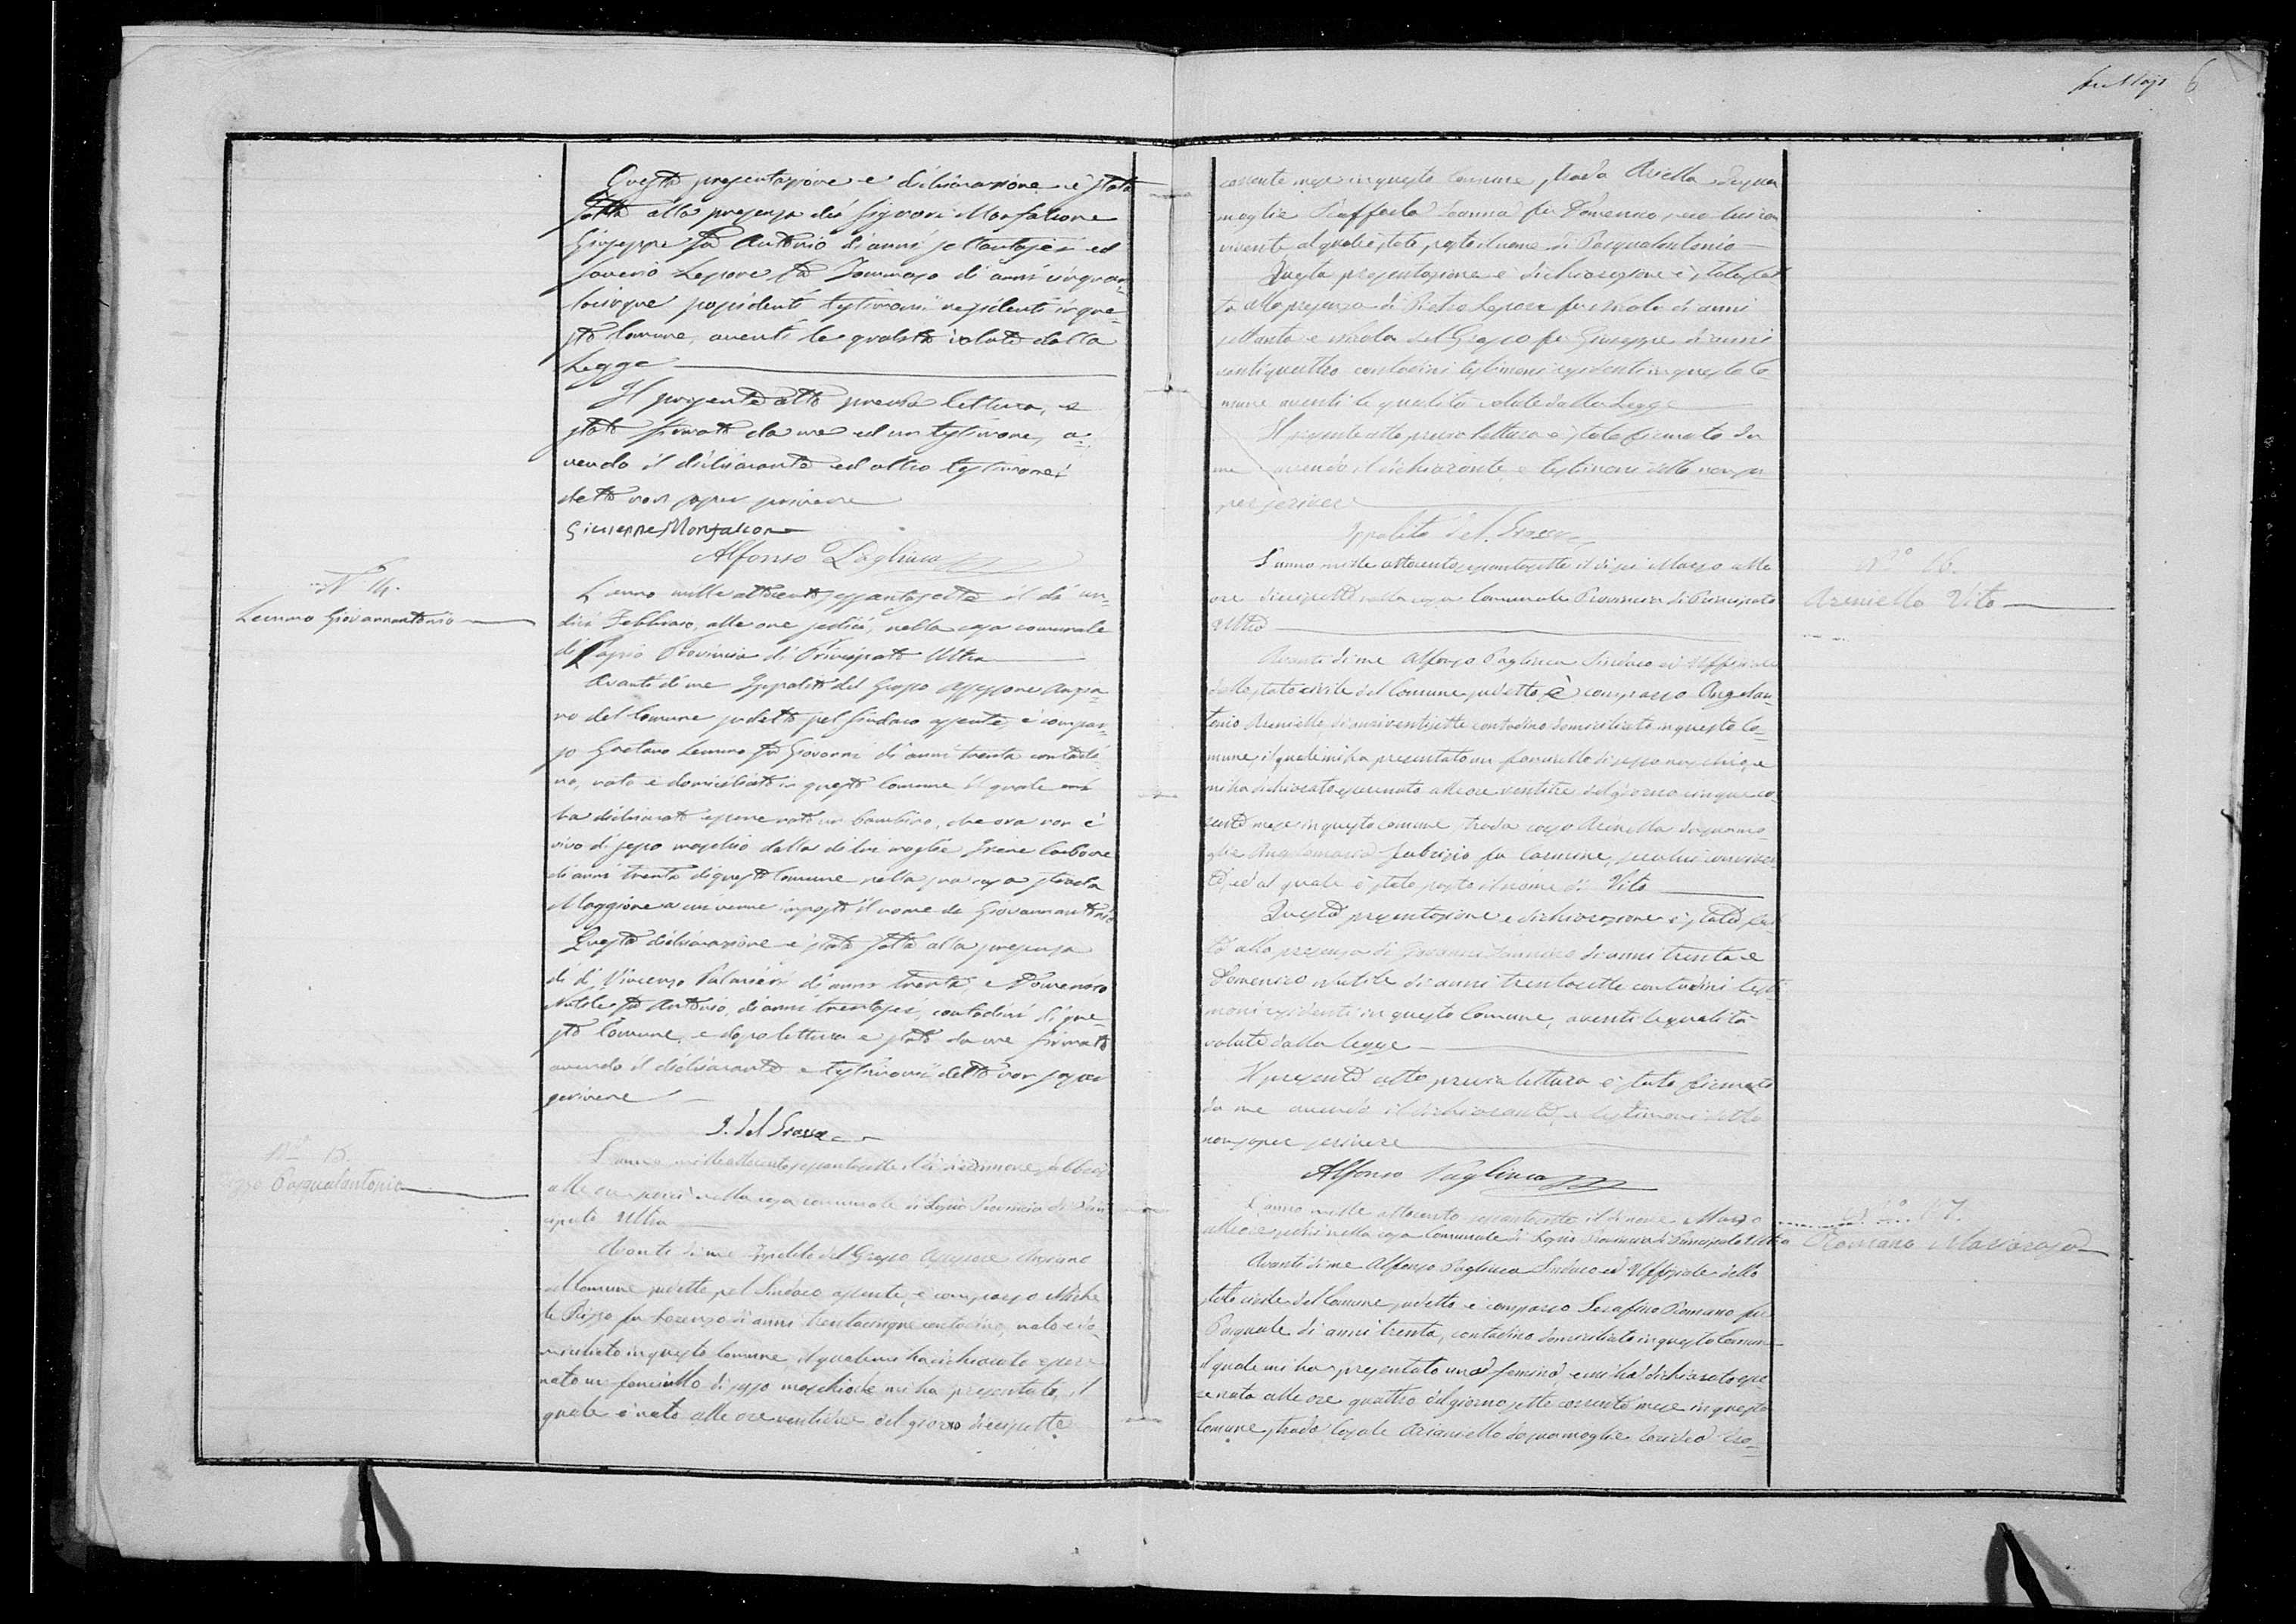 Questa presentazione e dichiarazione è stata
fatta alla presenza dei Signori Monfalcone
Giuseppe fu Antonio di anni settantasei ed
Saverio Lepore fu Tommaso di anni cinquan-
tacinque possidenti testimoni residenti in que-
sto Comune, aventi le qualità volute dalla
Legge
Il presente atto previa lettura, è
stato firmato da me ed un testimone, a-
vendo il dichiarante ed altro testimone
detto non saper scrivere
Giuseppe Monfalcone
Alfonso Pagliuca
N° 14.
Lemmo Giovannantonio
L'anno mille ottocento sessantasette il dì un-
dici Febbraro, alle ore sedici, nella casa comunale
di Lapio Provincia di Principato Ultra
Avanti di me Ippolito del Grosso Assessore Anzia-
no del Comune sudetto pel Sindaco assente, è compar-
so Gaetano Lemmo fu Giovanni di anni trenta contadi-
no, nato e domiciliato in questo Comune il quale mi
ha dichiarato essere nato un bambino, che ora non è
vivo di sesso maschio dalla di lui moglie Irene Carbone
di anni trenta di questo Comune nella sua casa strada
Maggiore a cui venne imposto il nome di Giovannantonio
Questa dichiarazione è stata fatta alla presenza
di Vincenzo Palmieri di anni trenta, e Domenico
Nutile fu Antonio, di anni trentasei, contadini di que-
sto Comune, e dopo lettura è stato da me firmato
avendo il dichiarante e testimoni detto non saper
scrivere
I. del Grosso
N° 15.
Pasqualantonio
L'anno mille ottocento sessantasette il dì diecinove Febbraro
alle ore sedici nella casa comunale di Lapio Provincia di Prin
cipato Ultra
Avanti di me Ippolito del Grosso Assessore Anziano
del Comune sudetto pel Sindaco assente, è comparso Miche
le Rizzo fu Lorenzo di anni trentacinque contadino, nato e do-
miciliato in questo Comune, il quale mi ha dichiarato essere
nato un fanciullo di sesso maschio che mi ha presentato, il
quale è nato alle ore ventidue del giorno diecisette
6
corrente mese in questo Comune strada Ariella da sua
moglie Raffaela Ioanna fu Domenico, seco lui con
vivente al quale è stato posto il nome di Pasqualantonio
Questa presentazione e dichiarazione è stata fat
ta alla presenza di Pietro Lepore fu Nicola di anni
settanta e Nicola del Grosso fu Giuseppe di anni
ventiquattro contadini testimoni residenti in questo Co-
mune aventi le qualità volute dalla Legge
Il presente atto previa lettura è stato firmato da
me avendo il dichiarante e testimoni detto non sa
per scrivere
Ippolito del Grosso
N° 16.
Areniello Vito
L'anno mille ottocentosessantasette il dì sei Marzo alle
ore diecisette nella casa Comunale Provincia di Principato
Ultra
Avanti di me Alfonso Pagliuca Sindaco ed Uffiziale
dello stato civile del Comune sudetto è comparso Angelan-
tonio Areniello di anni ventisette contadino domiciliato in questo Co-
mune, il quale mi ha presentato un fanciullo di sesso maschio, e
mi ha dichiarato esser nato alle ore ventitre del giorno cinque co-
rente mese in questo comune, strada casa Arinella da sua mo
glie Fabrizio fu Carmine, seco lui conviven
te, ed al quale è stato posto il nome di Vito
Questa presentazione e dichiarazione è stata fat
ta alla presenza di Giovanni di anni trenta e
Domenico Nutile di anni trentasette contadini testi
moni residenti in questo Comune, aventi le qualità
volute dalla legge
Il presente atto previa lettura è stato firmato
da me avendo il dichiarante, e testimoni detto
non saper scrivere
Alfonso Pagliuca
N° 17.
Romano Mariarosa
L'anno mille ottocento sessantasette il dì nove Marzo
alle ore sedici nella casa Comunale di Lapio Provincia di Principato Ultra
Avanti di me Alfonso Pagliuca Sindaco ed Uffiziale dello
stato civile del Comune sudetto è comparso Serafino Romano fu
Pasquale di anni trenta, contadino domiciliato in questo Comune
il quale mi ha presentato una femina, e mi ha dichiarato esse
re nata alle ore quattro del giorno sette corrente mese in questo
Comune, strada Casale Arianiello da sua moglie